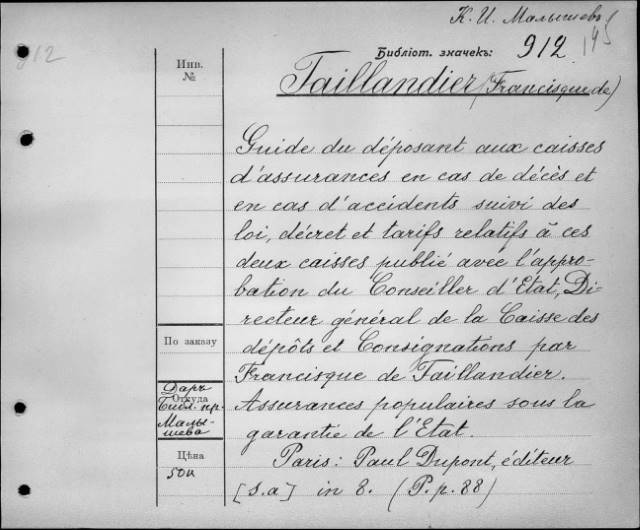 К. И. Малышевъ
912
Библіот. значекъ: 912 145
Инв. №
Taillandier (Francisque de)
Guide du déposant aux caisses
d'assurances en cas de décès et
en cas d'accidents suivi des
loi, décret et tarifs relatifs à ces
deux caisses publié avec l'appro-
bation du Conseiller d'Etat, Di-
recteur général de la Caisse des
dépôts et Consignations par
Francisque de Taillandier.
Assurances populaires sous la
garantie de l'Etat.
Paris: Paul Dupont, éditeur
[s.a] in 8. (P.p. 88)
По заказу
Даръ
Откуда
Библ. пр.
Малы-
шева
Цѣна
50к